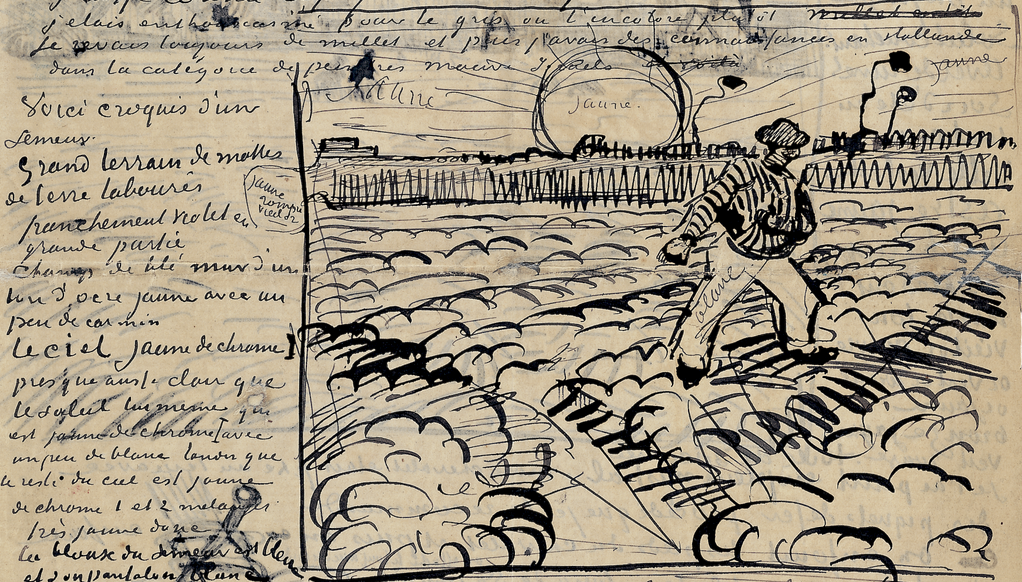 j'etais enthousiasmé pour le gris ou l'incolore plutôt
je revais toujours de millet et puis j'avais des connaissances en Hollande
dans la catégorie de peintres mauve israels
Jaune
jaune.
jaune
Voici croquis d'un
semeur.
Grand terrain de mottes
de terre labourés
franchement violet en
grande partie
jaune
rompu
violet
Champ de blé mur d'un
ton d'ocre jaune avec un
peu de carmin
Le ciel jaune de chrome 1
presque aussi clair que
le soleil lui meme qui
est jaune de chrome 1 avec
un peu de blanc tandis que
le reste du ciel est jaune
de chrome 1 et 2 melangés
très jaune donc
La blouse du semeur est bleue
et son pantalon blanc
blanc